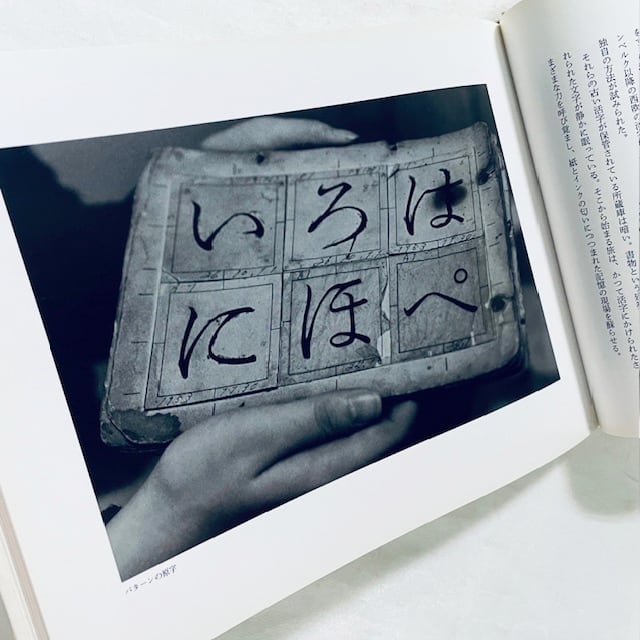 いろは
にほぺ
パターンの原字
ンベルク以降の西欧の
独自の方法が試みられた。
それらの古い活字が保管されている所蔵庫は暗い。書物という
れられた文字が静かに眠っている。そこから始まる旅は、かつて活字にかけられたさ
まざまな力を呼び覚まし、紙とインクの匂いにつつまれた記憶の現場を蘇らせる。